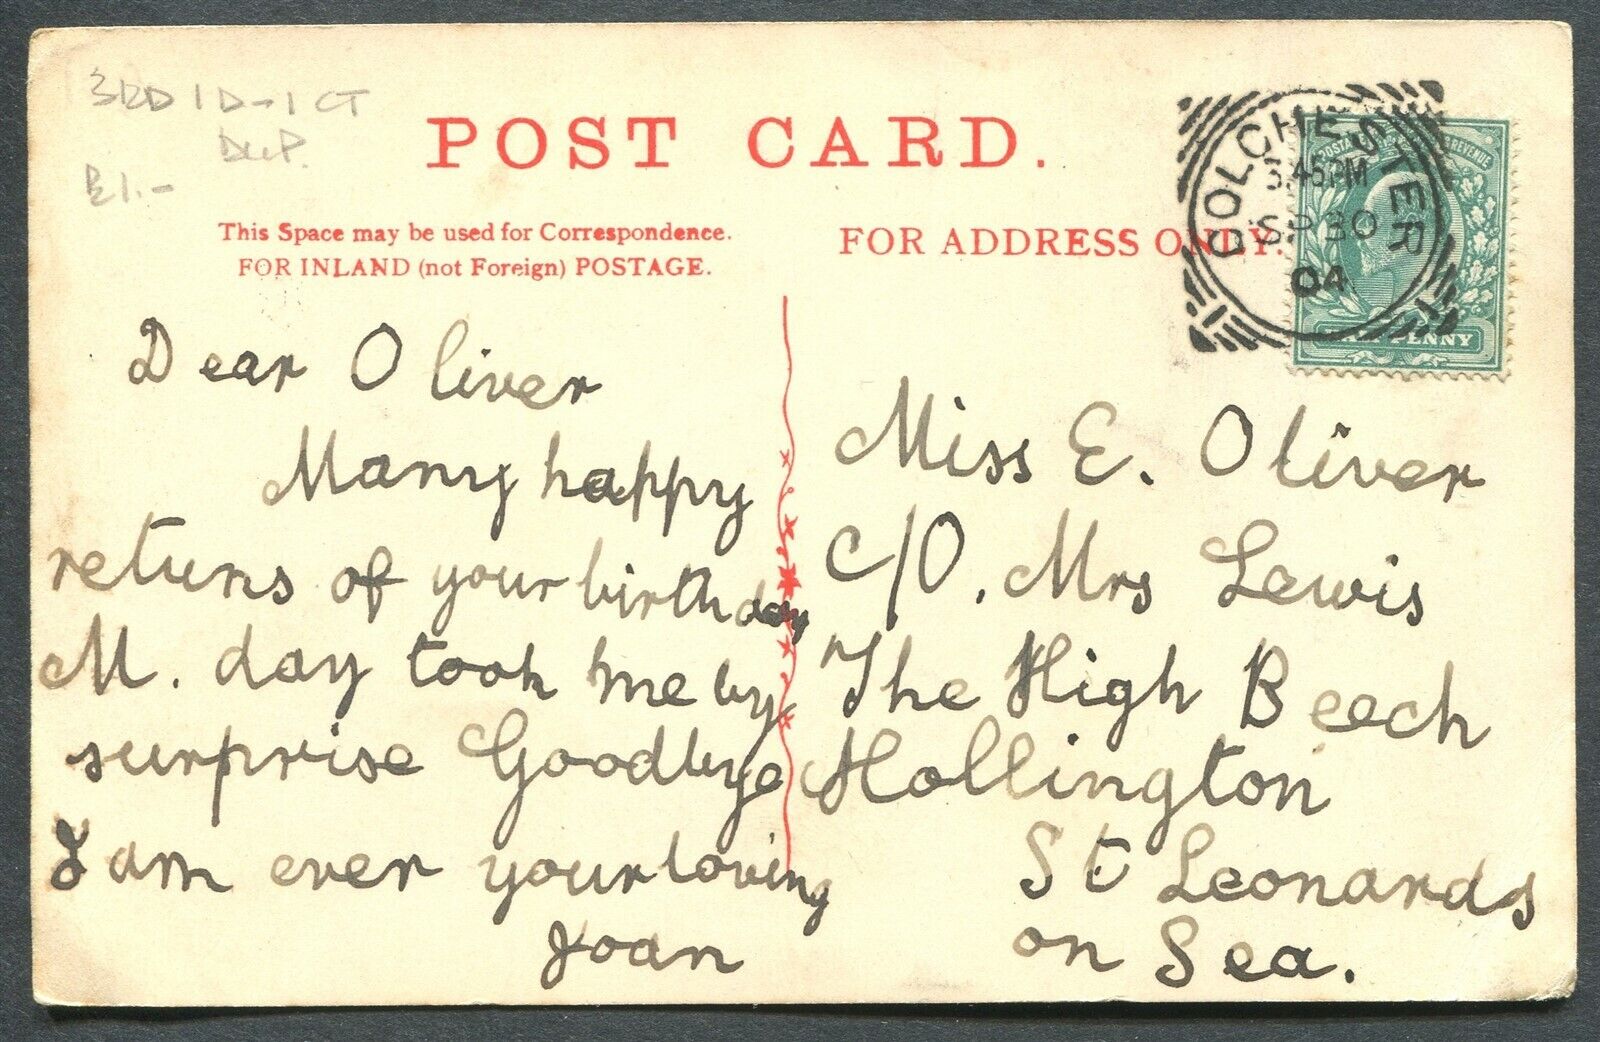 3RD 1D-1CT
£1.-
POST CARD.
This Space may be used for Correspondence.
FOR INLAND (not Foreign) POSTAGE.
FOR ADDRESS ONLY.
COLCHESTER
3.45PM
SP 30
04
POSTAGE REVENUE
HALFPENNY
Dear Oliver
Many happy
returns of your birthday
M. day took me by
surprise Goodbye
I am ever your loving
Joan
Miss E. Oliver
c/o. Mrs Lewis
The High Beech
Hollington
St Leonards
on Sea.